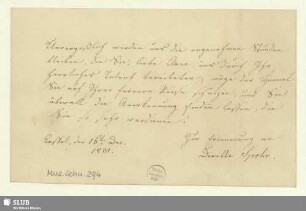 Unvergeßlich werden uns die angenehmen Stunden
bleiben, die Sie, liebe Clara, uns durch Ihr
herrliches Talent bereiteten; möge der Himmel
Sie auf Ihrer ferneren Reise schützen, und Sie
überall die Anerkennung finden lassen, die
Sie so sehr verdienen!
Cassel, den 16ten Dec.
1831.
Zur Erinnerung an
Spohr.
Mus.Schu.294
SLUB